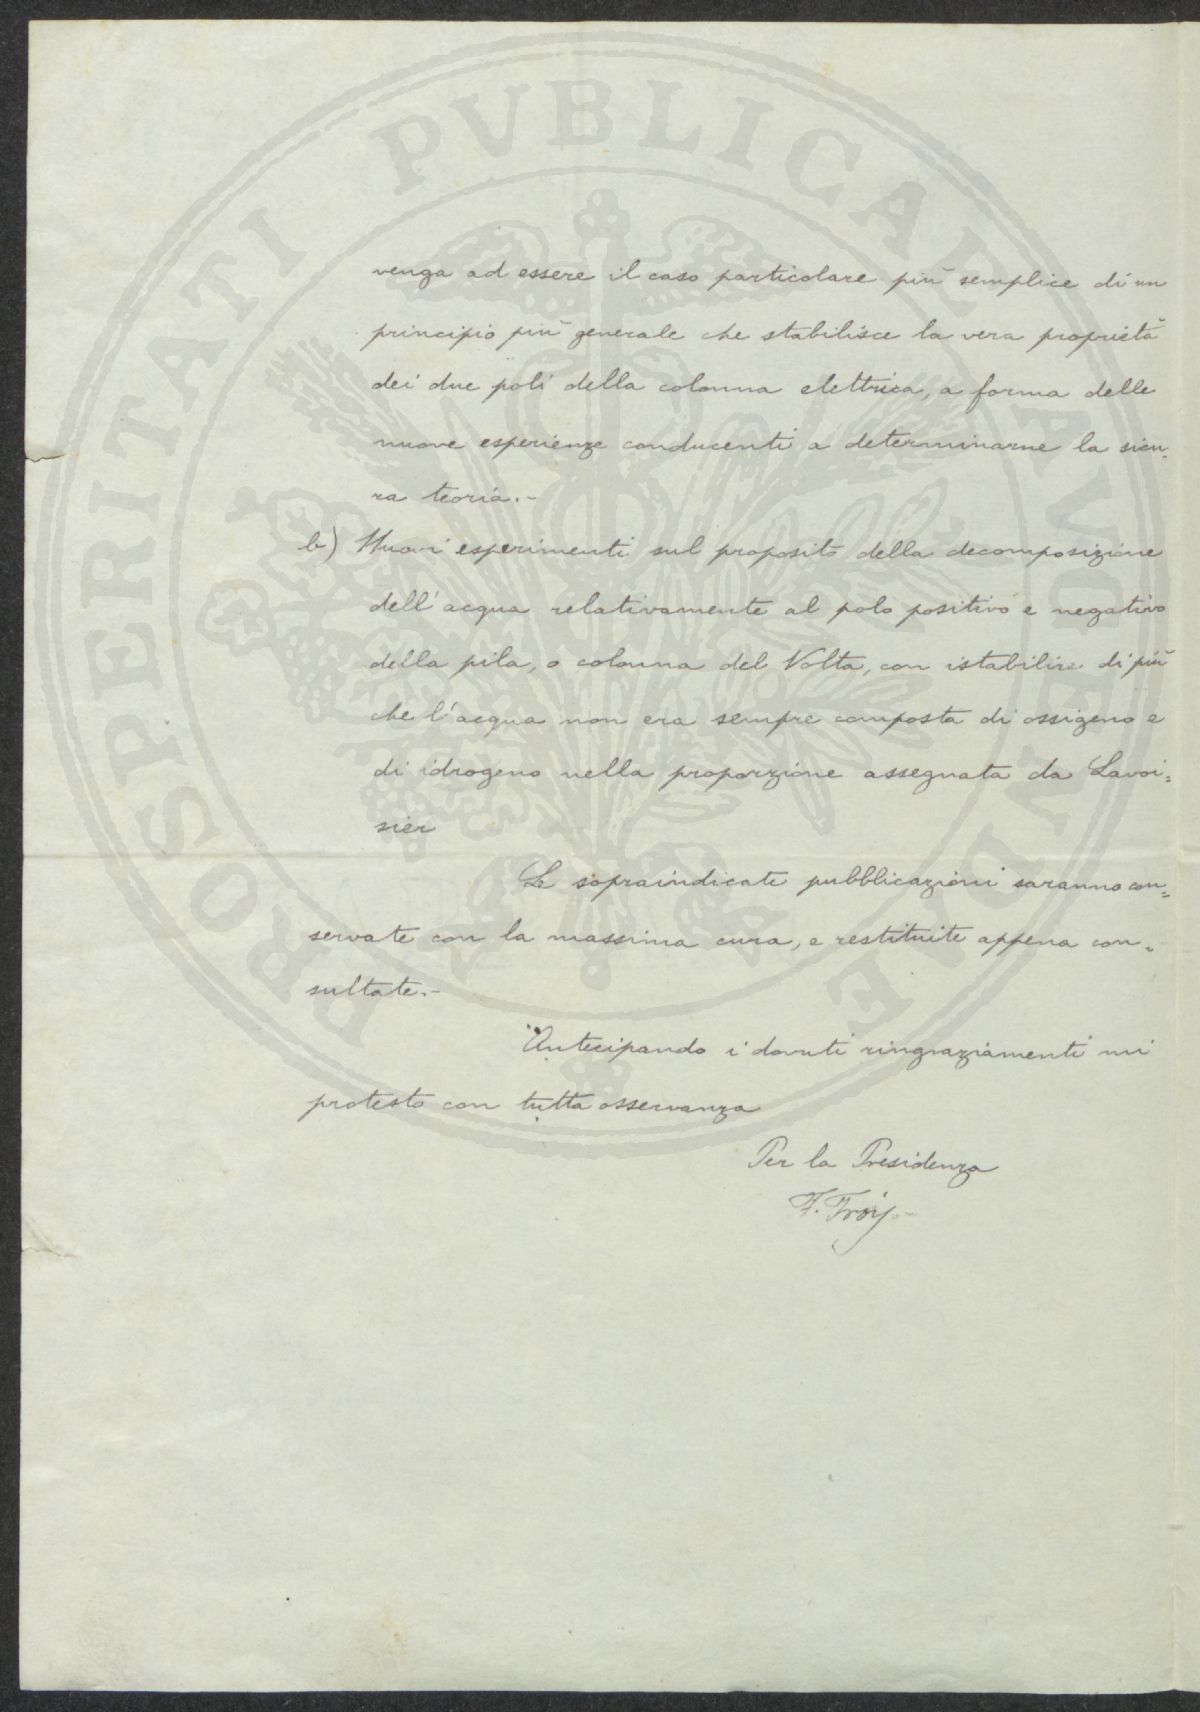 venga ad essere il caso particolare più semplice di un
principio più generale che stabilisce la vera proprietà
dei due poli della colonna elettrica, a forma delle
nuove esperienze conducenti a determinarne la sicu-
ra teoria.-
b) Nuovi esperimenti sul proposito della decomposizione
dell'acqua relativamente al polo positivo e negativo
della pila, o colonna del Volta, con istabilire di più
che l'acqua non era sempre composta di ossigeno e
di idrogeno nella proporzione assegnata da Lavoi=
sier
Le sopraindicate pubblicazioni saranno con=
servate con la massima cura, e restituite appena con=
sultate.-
Antecipando i dovuti ringraziamenti mi
protesto con tutta osservanza
Per la Presidenza
F.
PROSPERITATI PVBLICAE AVGENDAE